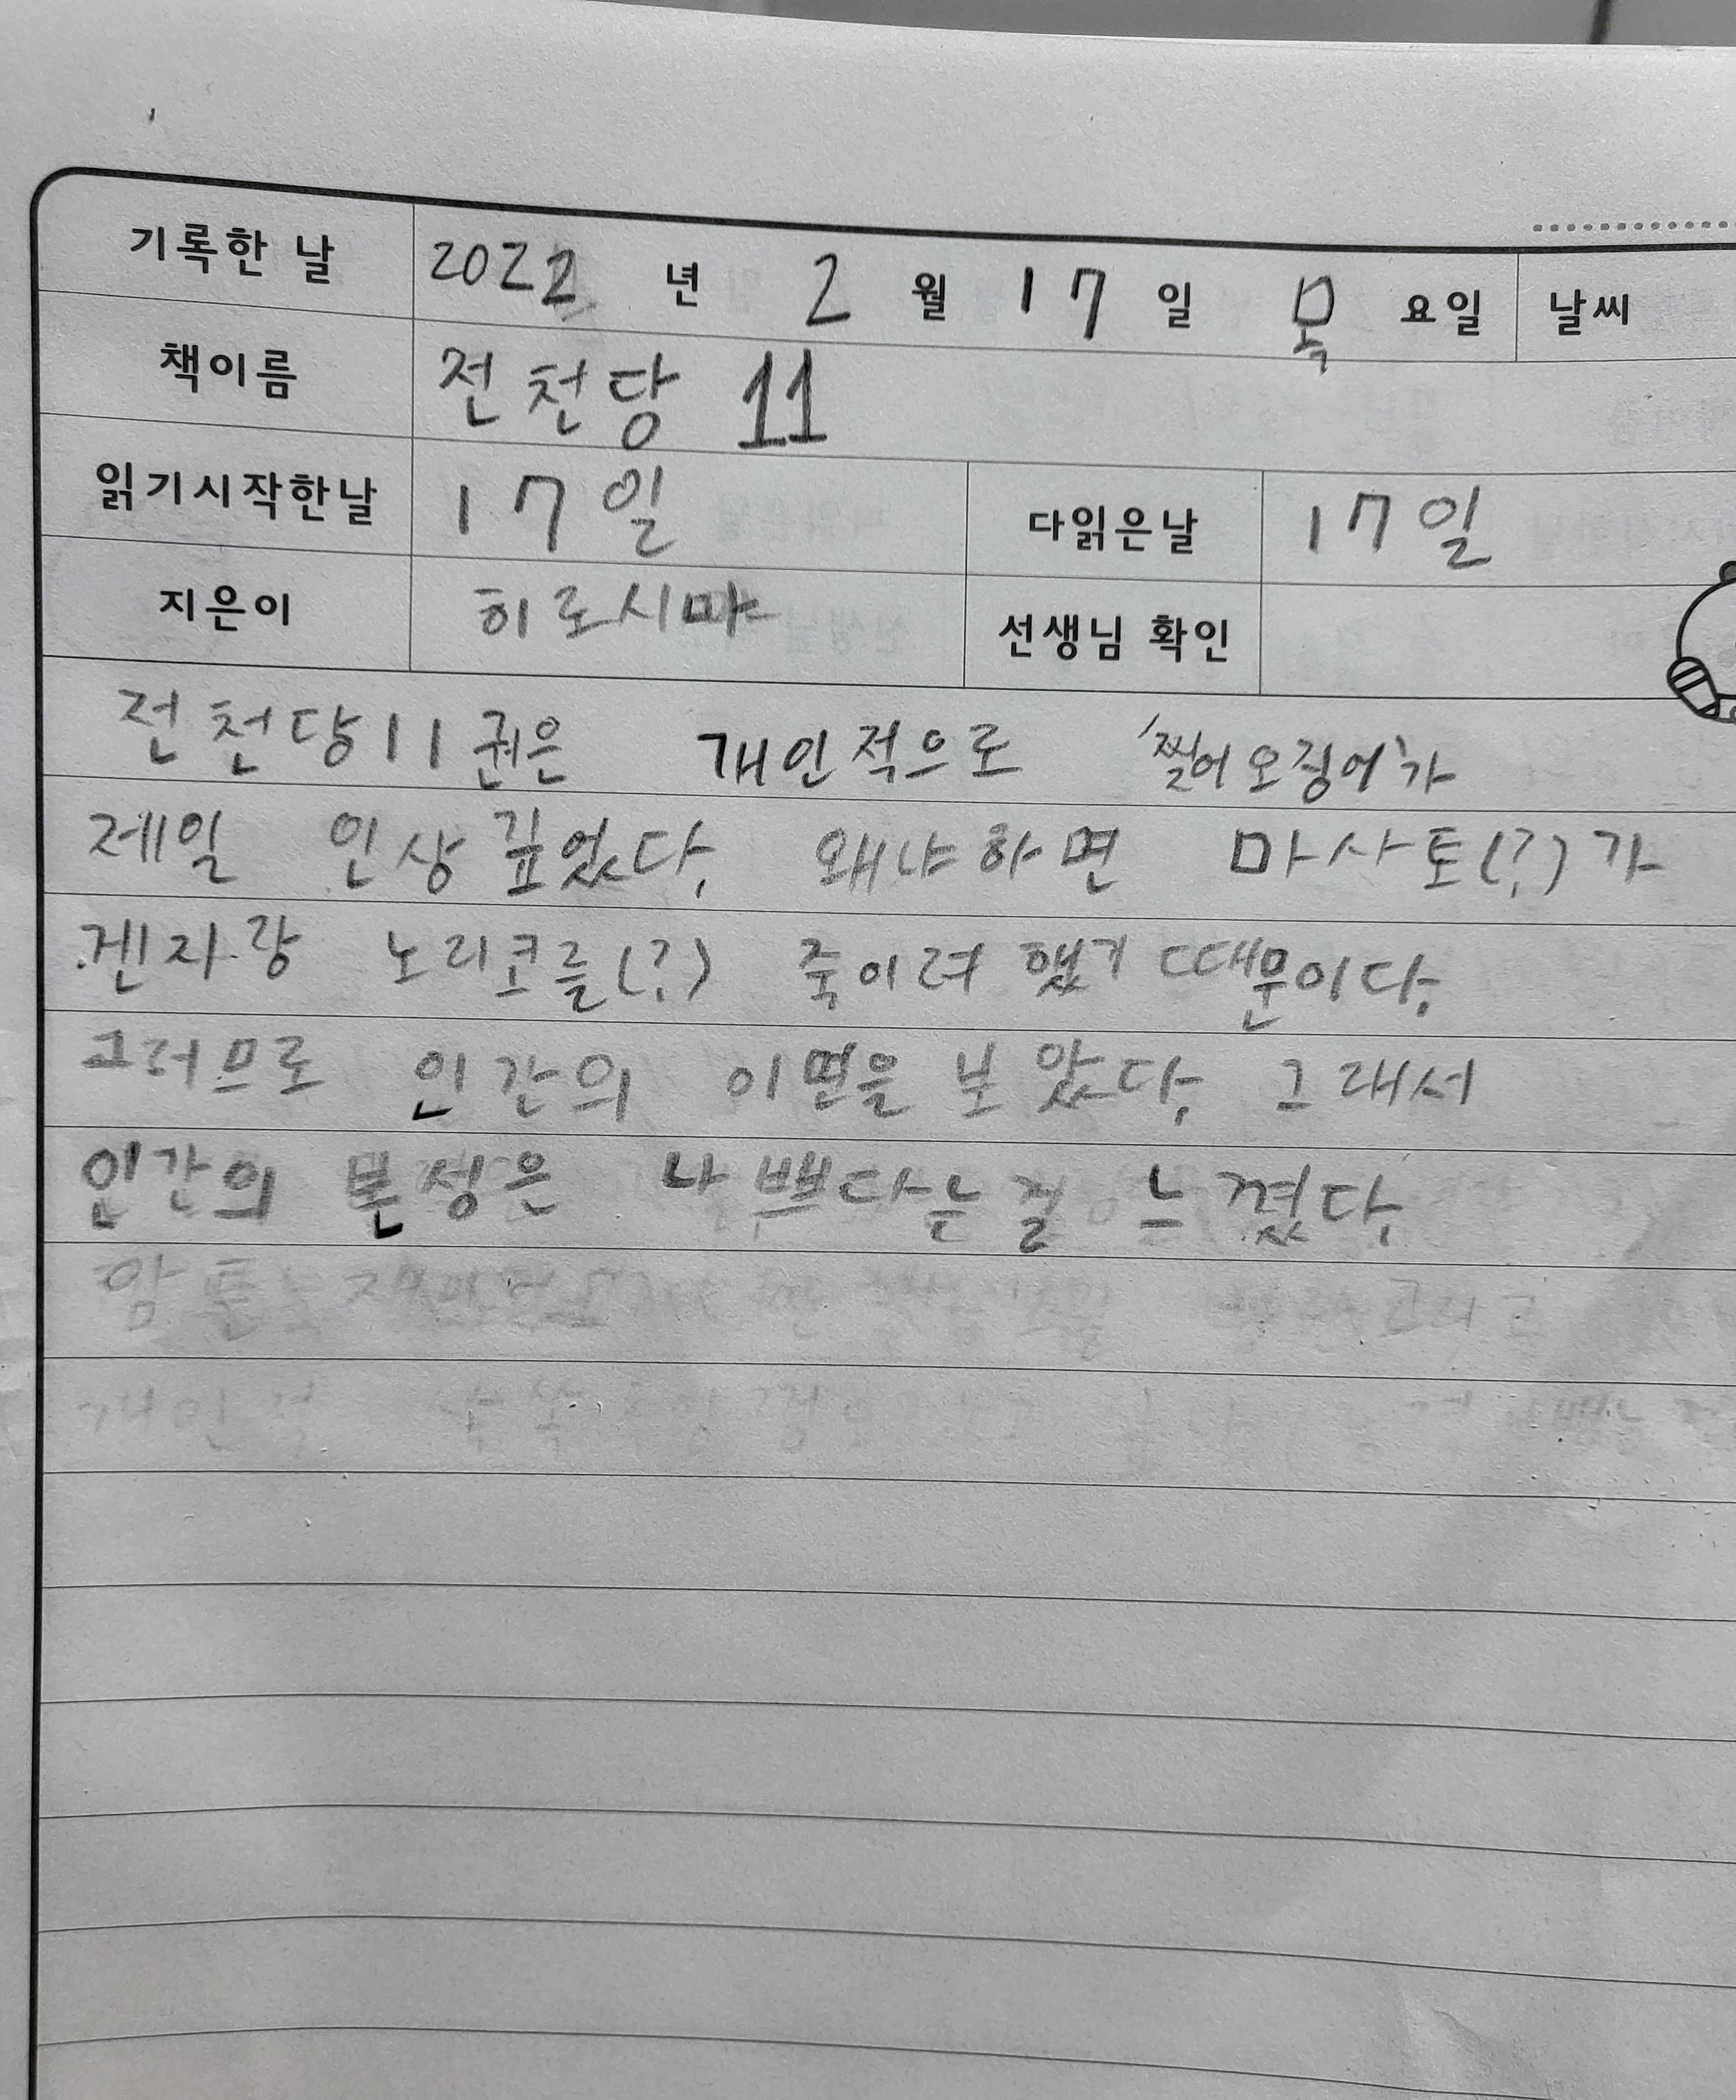 기록한 날 2022 년 2 월 17 일 목 요일 날씨
책이름 전천당 11
읽기시작한날 17일 다읽은날 17일
지은이 히로시마 선생님 확인
전천당11권은 개인적으로 '찢어오징어'가
제일 인상깊었다. 왜냐하면 마사토(?)가
겐지랑 노리코를(?) 죽이려 했기 때문이다.
그러므로 인간의 이면을 보았다. 그래서
인간의 본성은 나쁘다는걸 느꼈다.